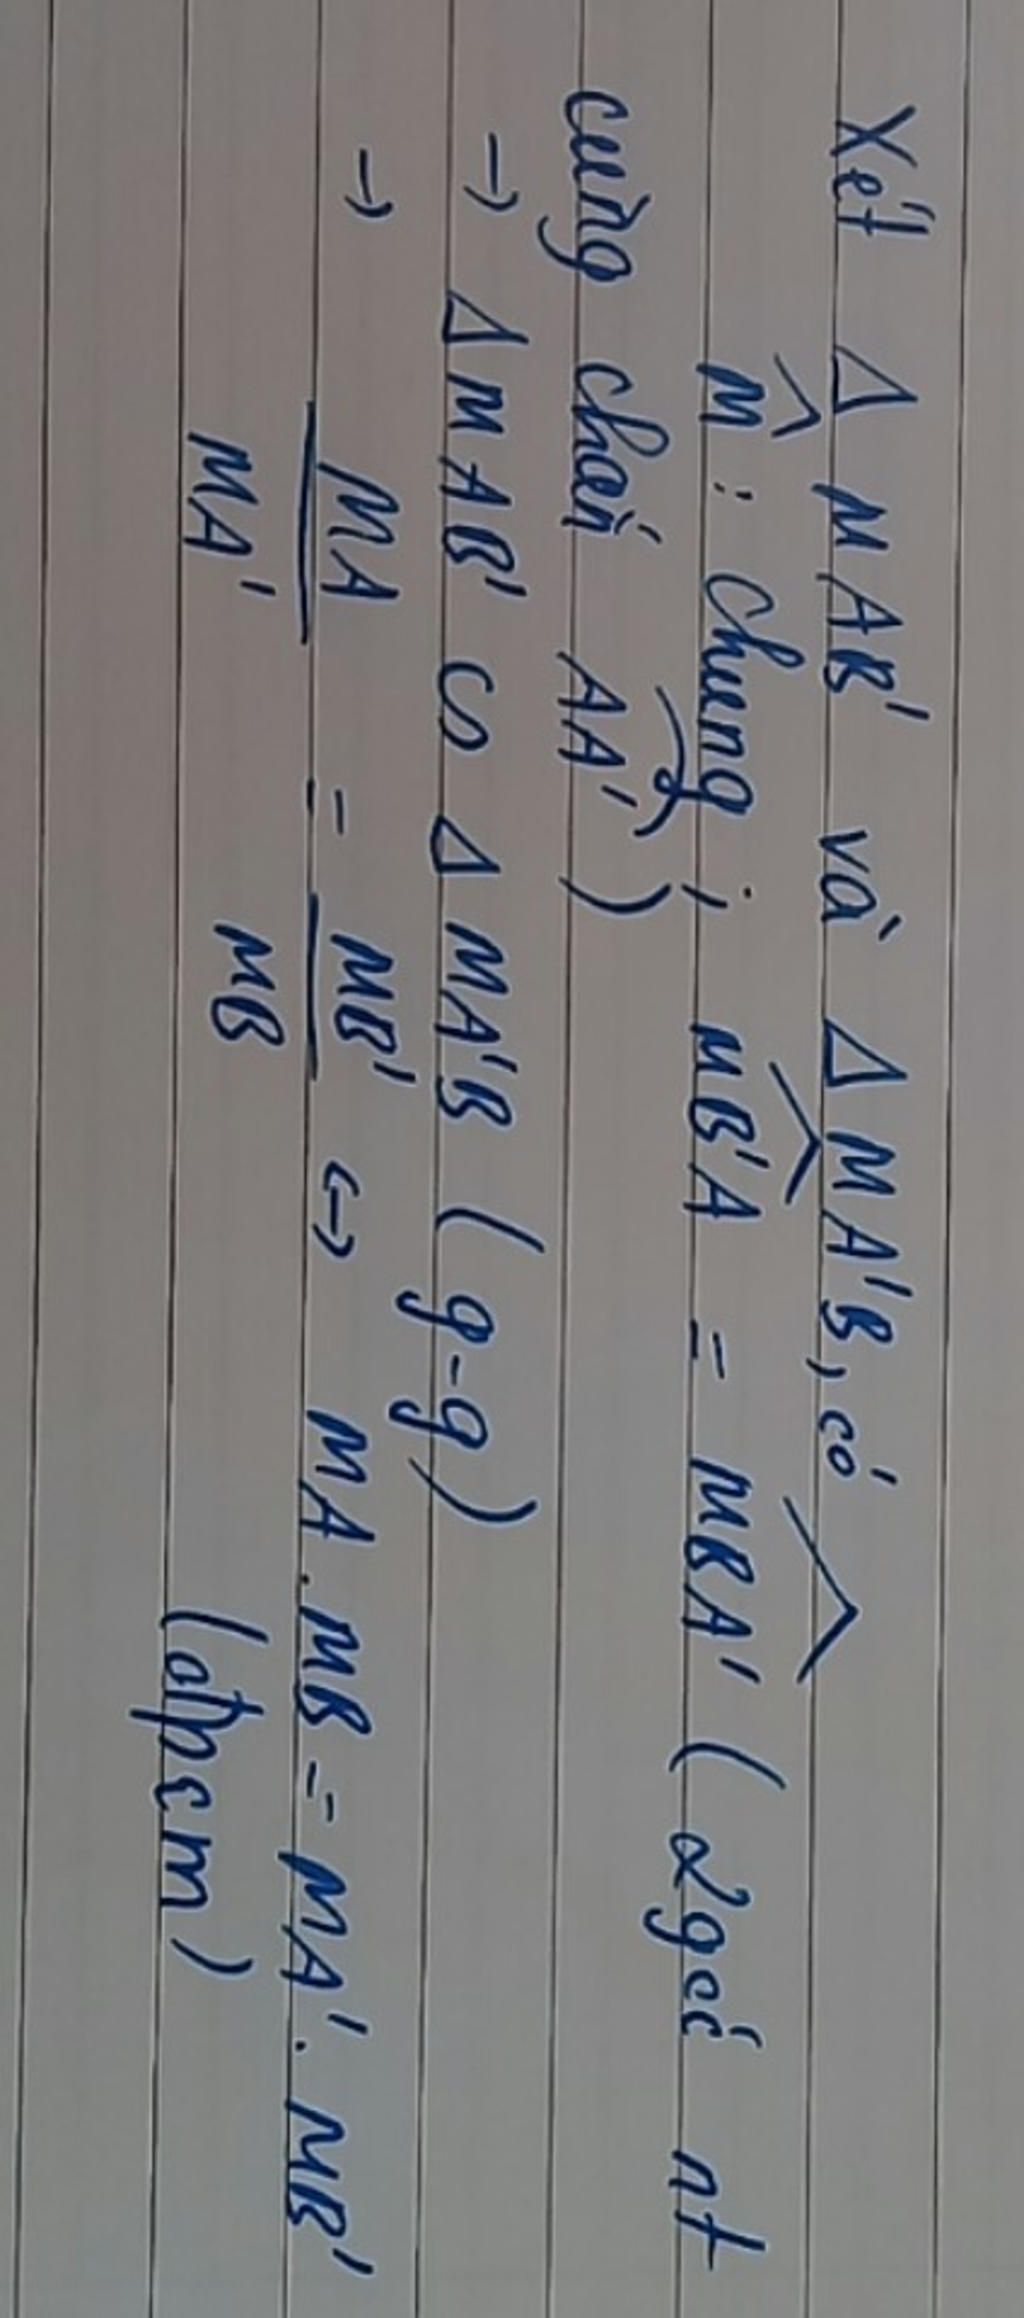 Xét Δ MAB' và Δ MA'B, có
M̂ : chung ; MB'A = MBA' (2 góc nt
cùng chắn AA')
→ Δ MAB' ∽ Δ MA'B (g-g)
→ MA/MA' = MB'/MB ↔ MA.MB = MA'.MB'
(đpcm)